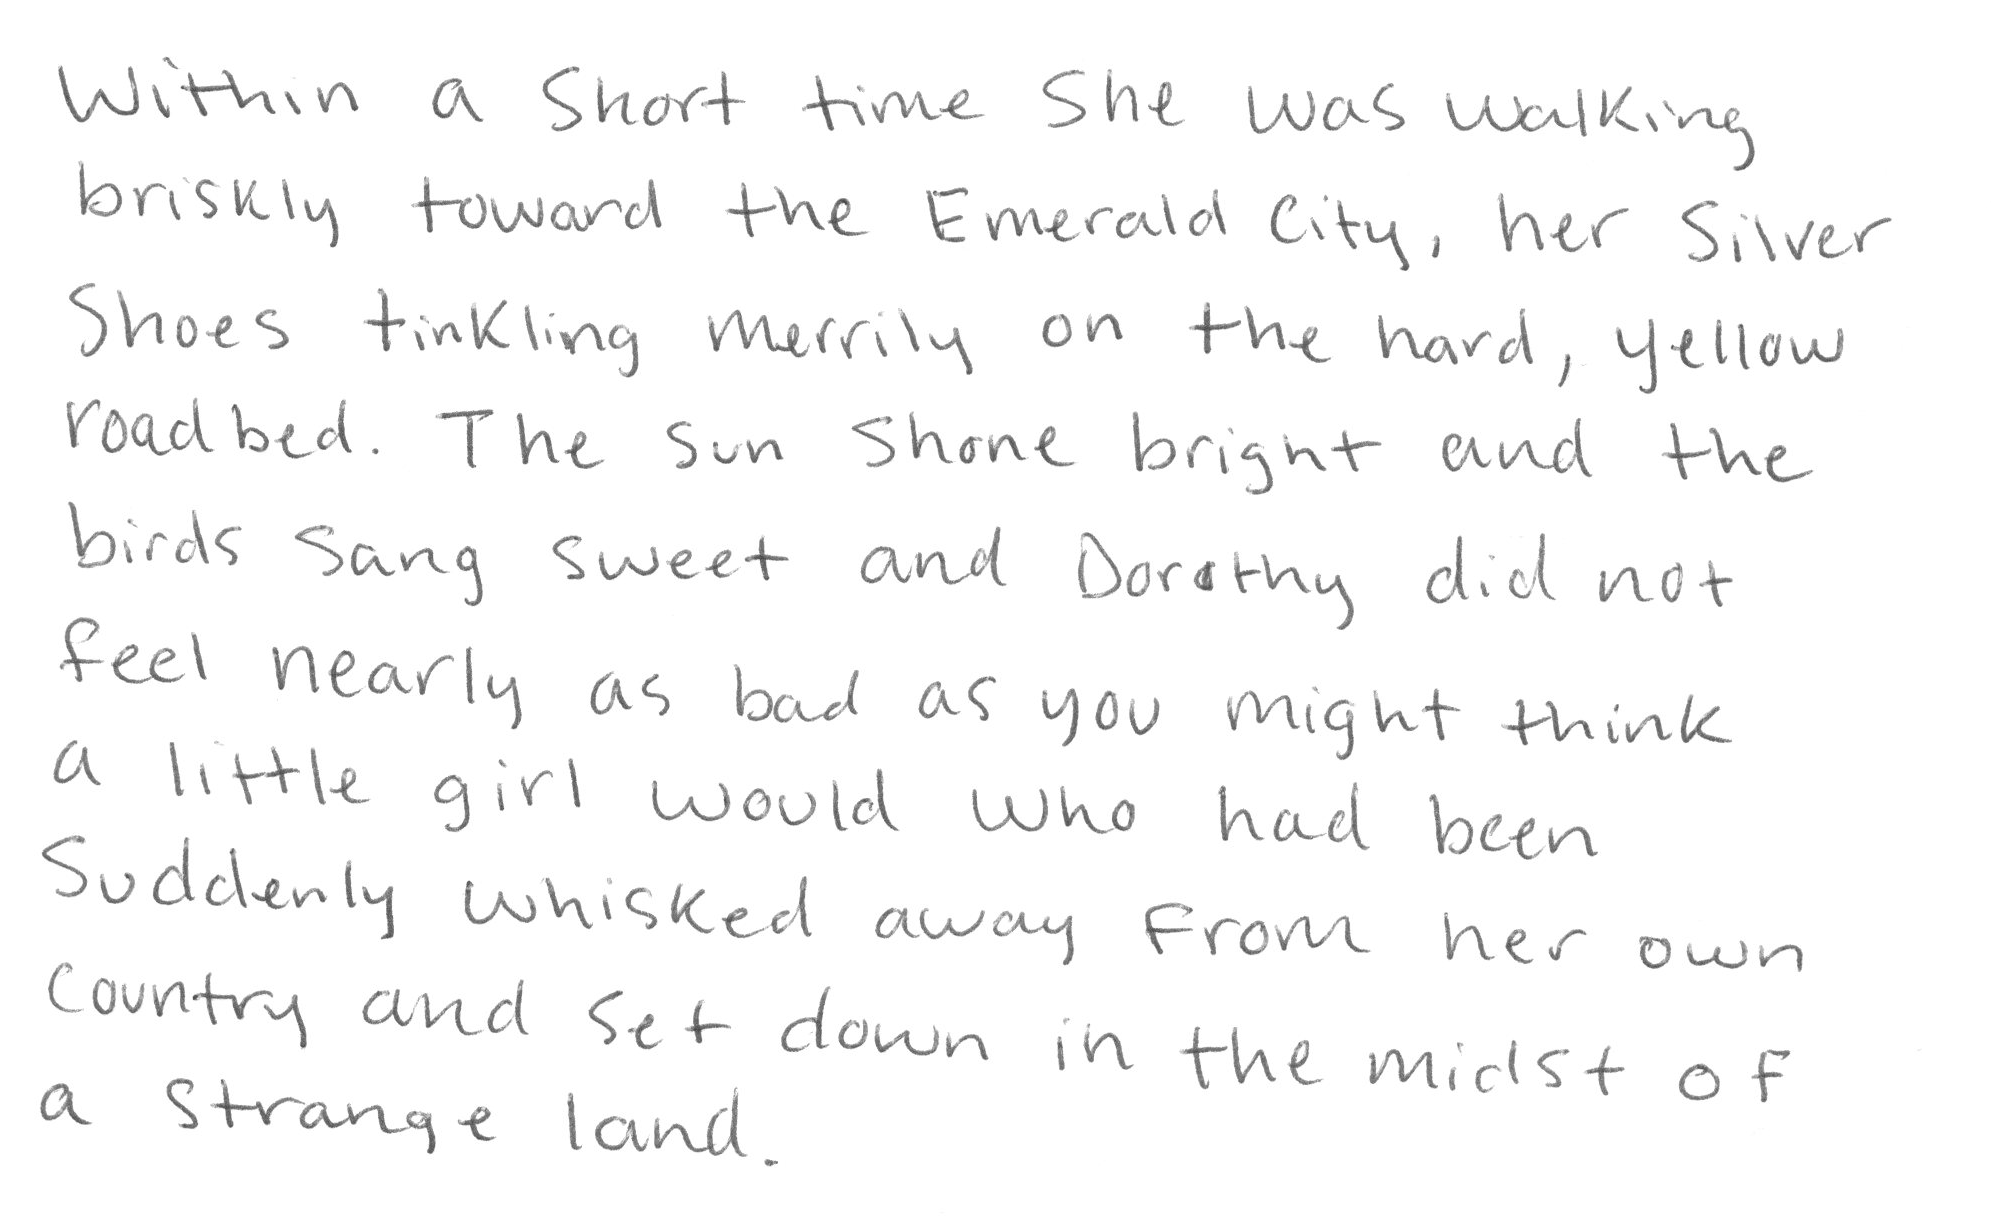 Within a short time she was walking
briskly toward the Emerald City, her Silver
Shoes tinkling merrily on the hard, yellow
roadbed. The sun shone bright and the
birds sang sweet and Dorothy did not
feel nearly as bad as you might think
a little girl would who had been
suddenly whisked away from her own
country and set down in the midst of
a strange land.